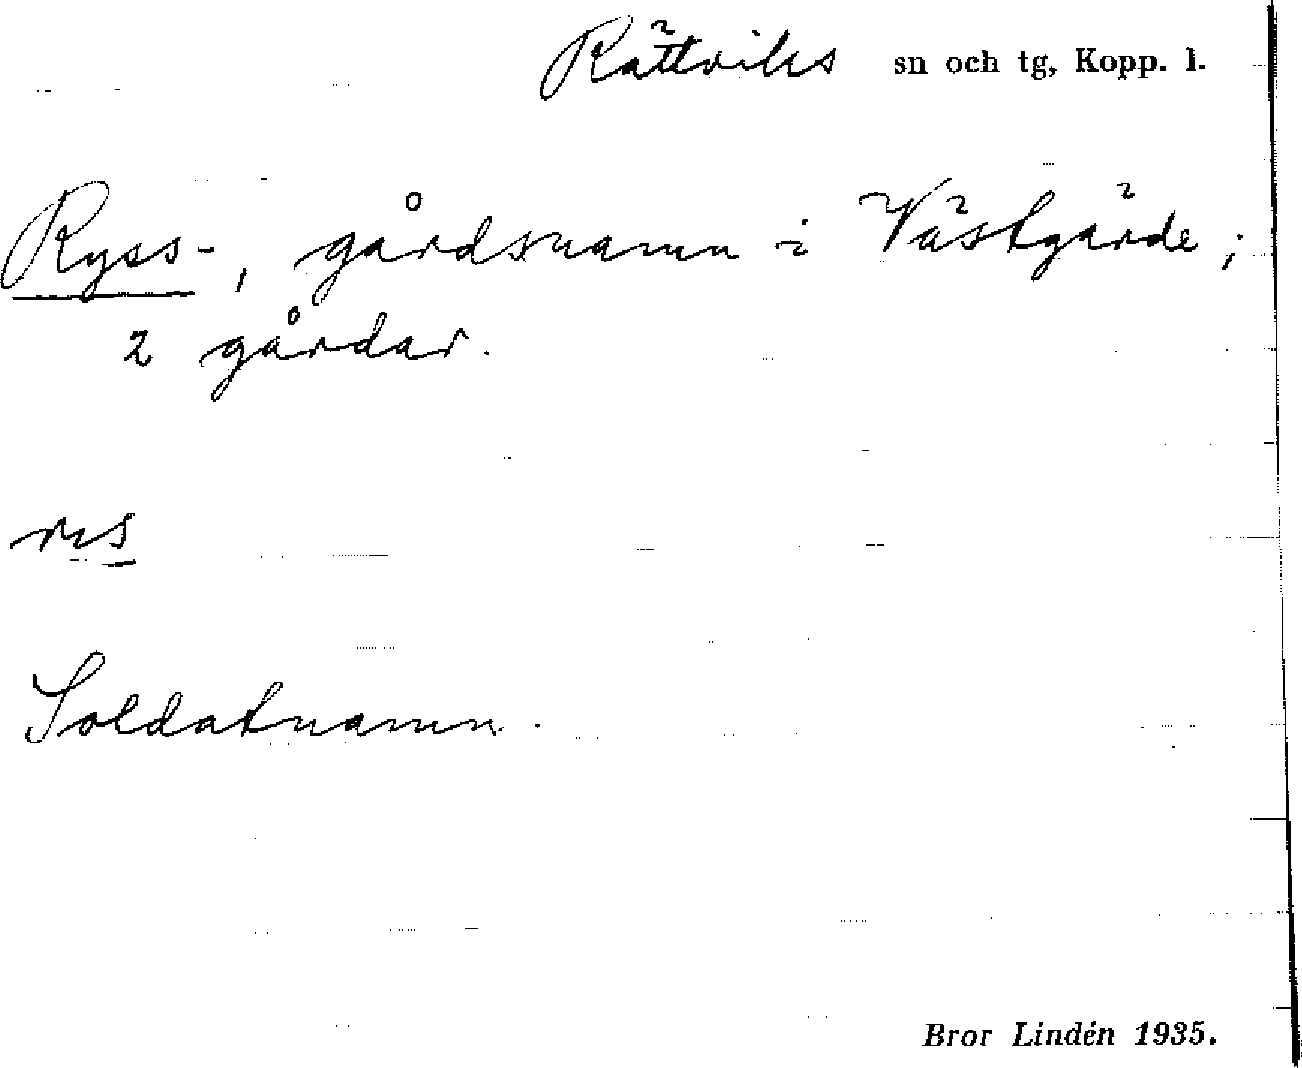 Rättviks sn och tg, Kopp. l.
Ryss-, gårdsnamn i Västgärde;
2 gårdar.
Soldatnamn.
Bror Lindén 1935.